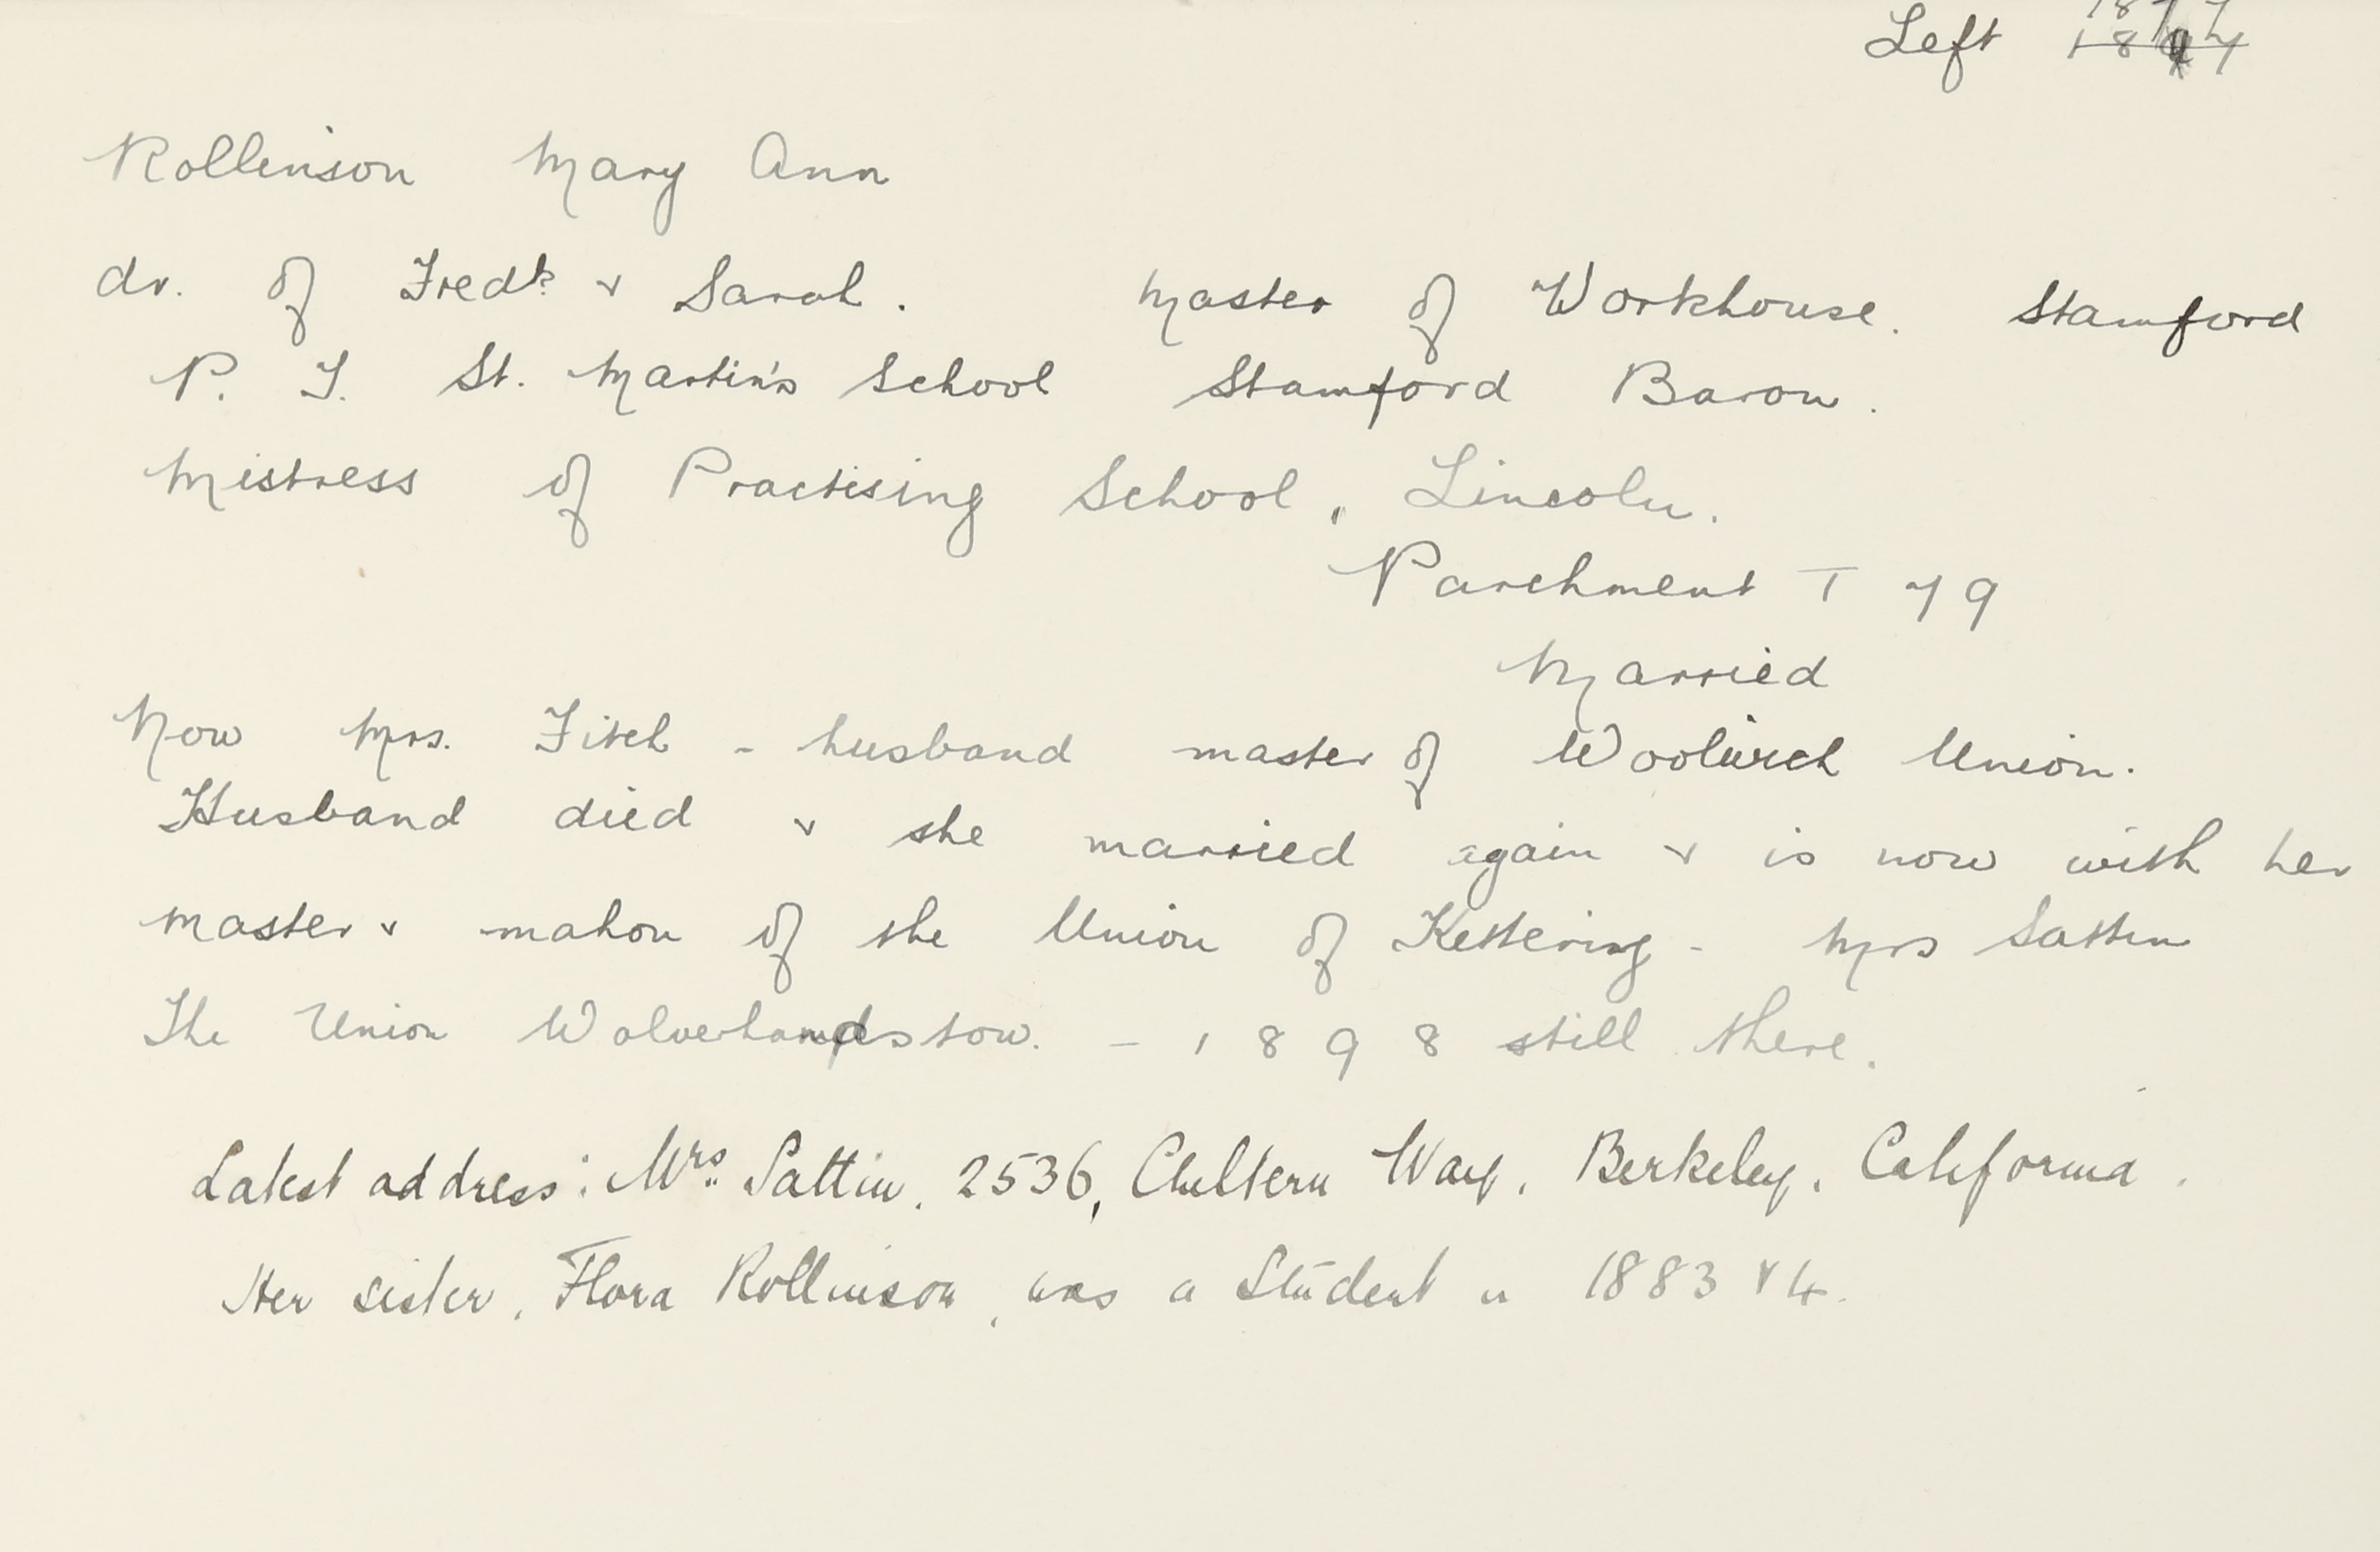 1877
Left 1897
Rollinson Mary Ann
dr. of Fredk. & Sarah. Master of Workhouse. Stamford
P. T. St. Martin's School Stamford Baron.
Mistress of Practising School, Lincoln.
Parchment T 79
Married
Now Mrs. Fitch - husband master of Woolwich Union.
Husband died & she married again & is now with her
master & matron of the Union of Kettering - Mrs Sattin
The Union Wolverhampstow. - 1898 still there.
Latest address: Mrs. Sattin, 2536, Chiltern Way, Berkeley, California.
Her sister, Flora Rollinson, was a Student in 1883 & 4.